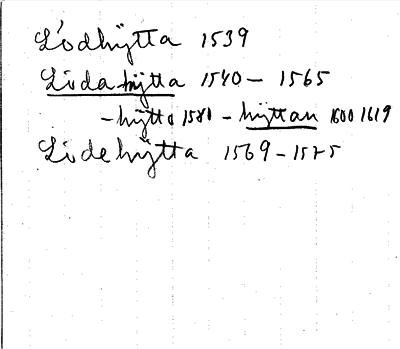 Lödhÿtta 1539
Lödahÿtta 1540 - 1565
- hÿtta 1580 - hÿttan 1600 1619
Lödehÿtta 1569 - 1575